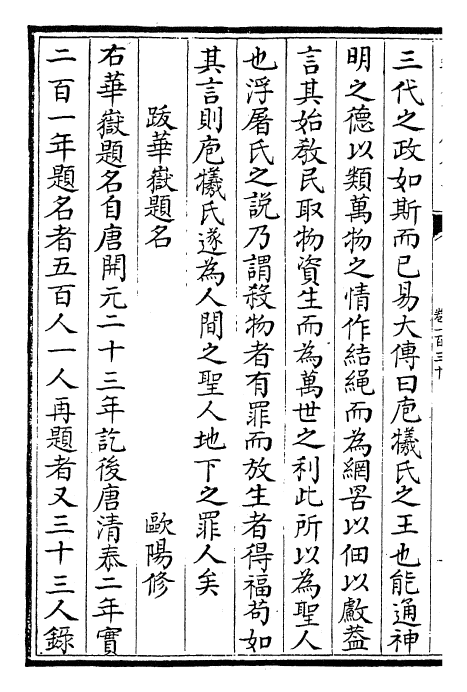 三代之政如斯而已易大傳曰庖犧氏之王也能通神
明之德以類萬物之情作結繩而為網罟以佃以䱷葢
言其始教民取物資生而為萬世之利此所以為聖人
也浮屠氏之説乃謂殺物者有罪而放生者得福苟如
其言則庖犧氏遂為人間之聖人地下之罪人矣
跋華嶽題名 歐陽修
右華嶽題名自唐開元二十三年訖後唐清泰二年實
二百一年題名者五百人一人再題者又三十三人錄
卷一百三十